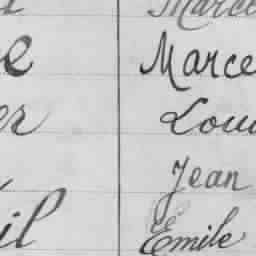 Marce
e Marce
er Lou
Jean
il Emile